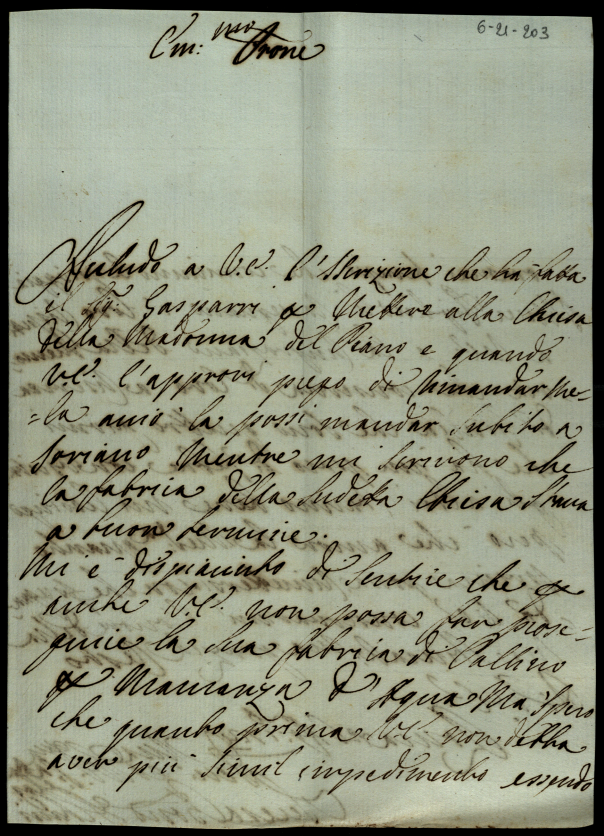 6-21-203
Em:mo Prone
Acchiudo a V.E. l'Iscrizione che ha fatta
il Sig: Gasparri p Mettere alla Chiesa
della Madonna del Piano e quando
V.E. l'approvi prego di rimandarme-
=la acciò la possi mandar subito a
Soriano mentre mi scrivono che
la fabrica della sudetta Chiesa stava
a buon termine.
Mi è dispiaciuto di sentire che p
anche V.E. non possa far prose-
guire la sua fabrica di Gallino
p Mancanza d'Aqua Ma spero
che quanto prima V.E. non debba
aver più simil impedimento essendo